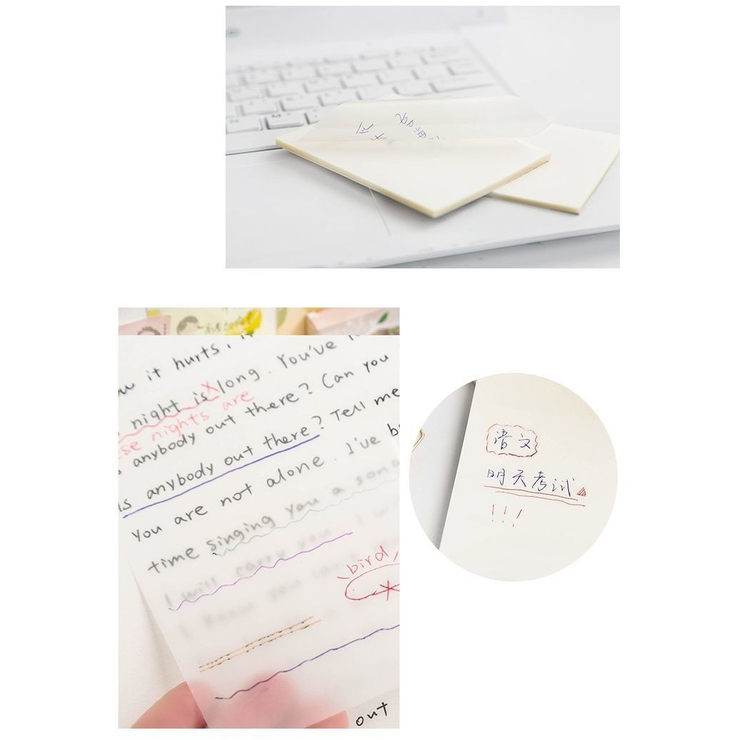 it hurts,
night is long. You've
nights are
anybody out there? Can you
is anybody out there? Tell me
you are not alone. I've
time singing you a song
I will carry you I
bird
out
语文
明天考试
!!!